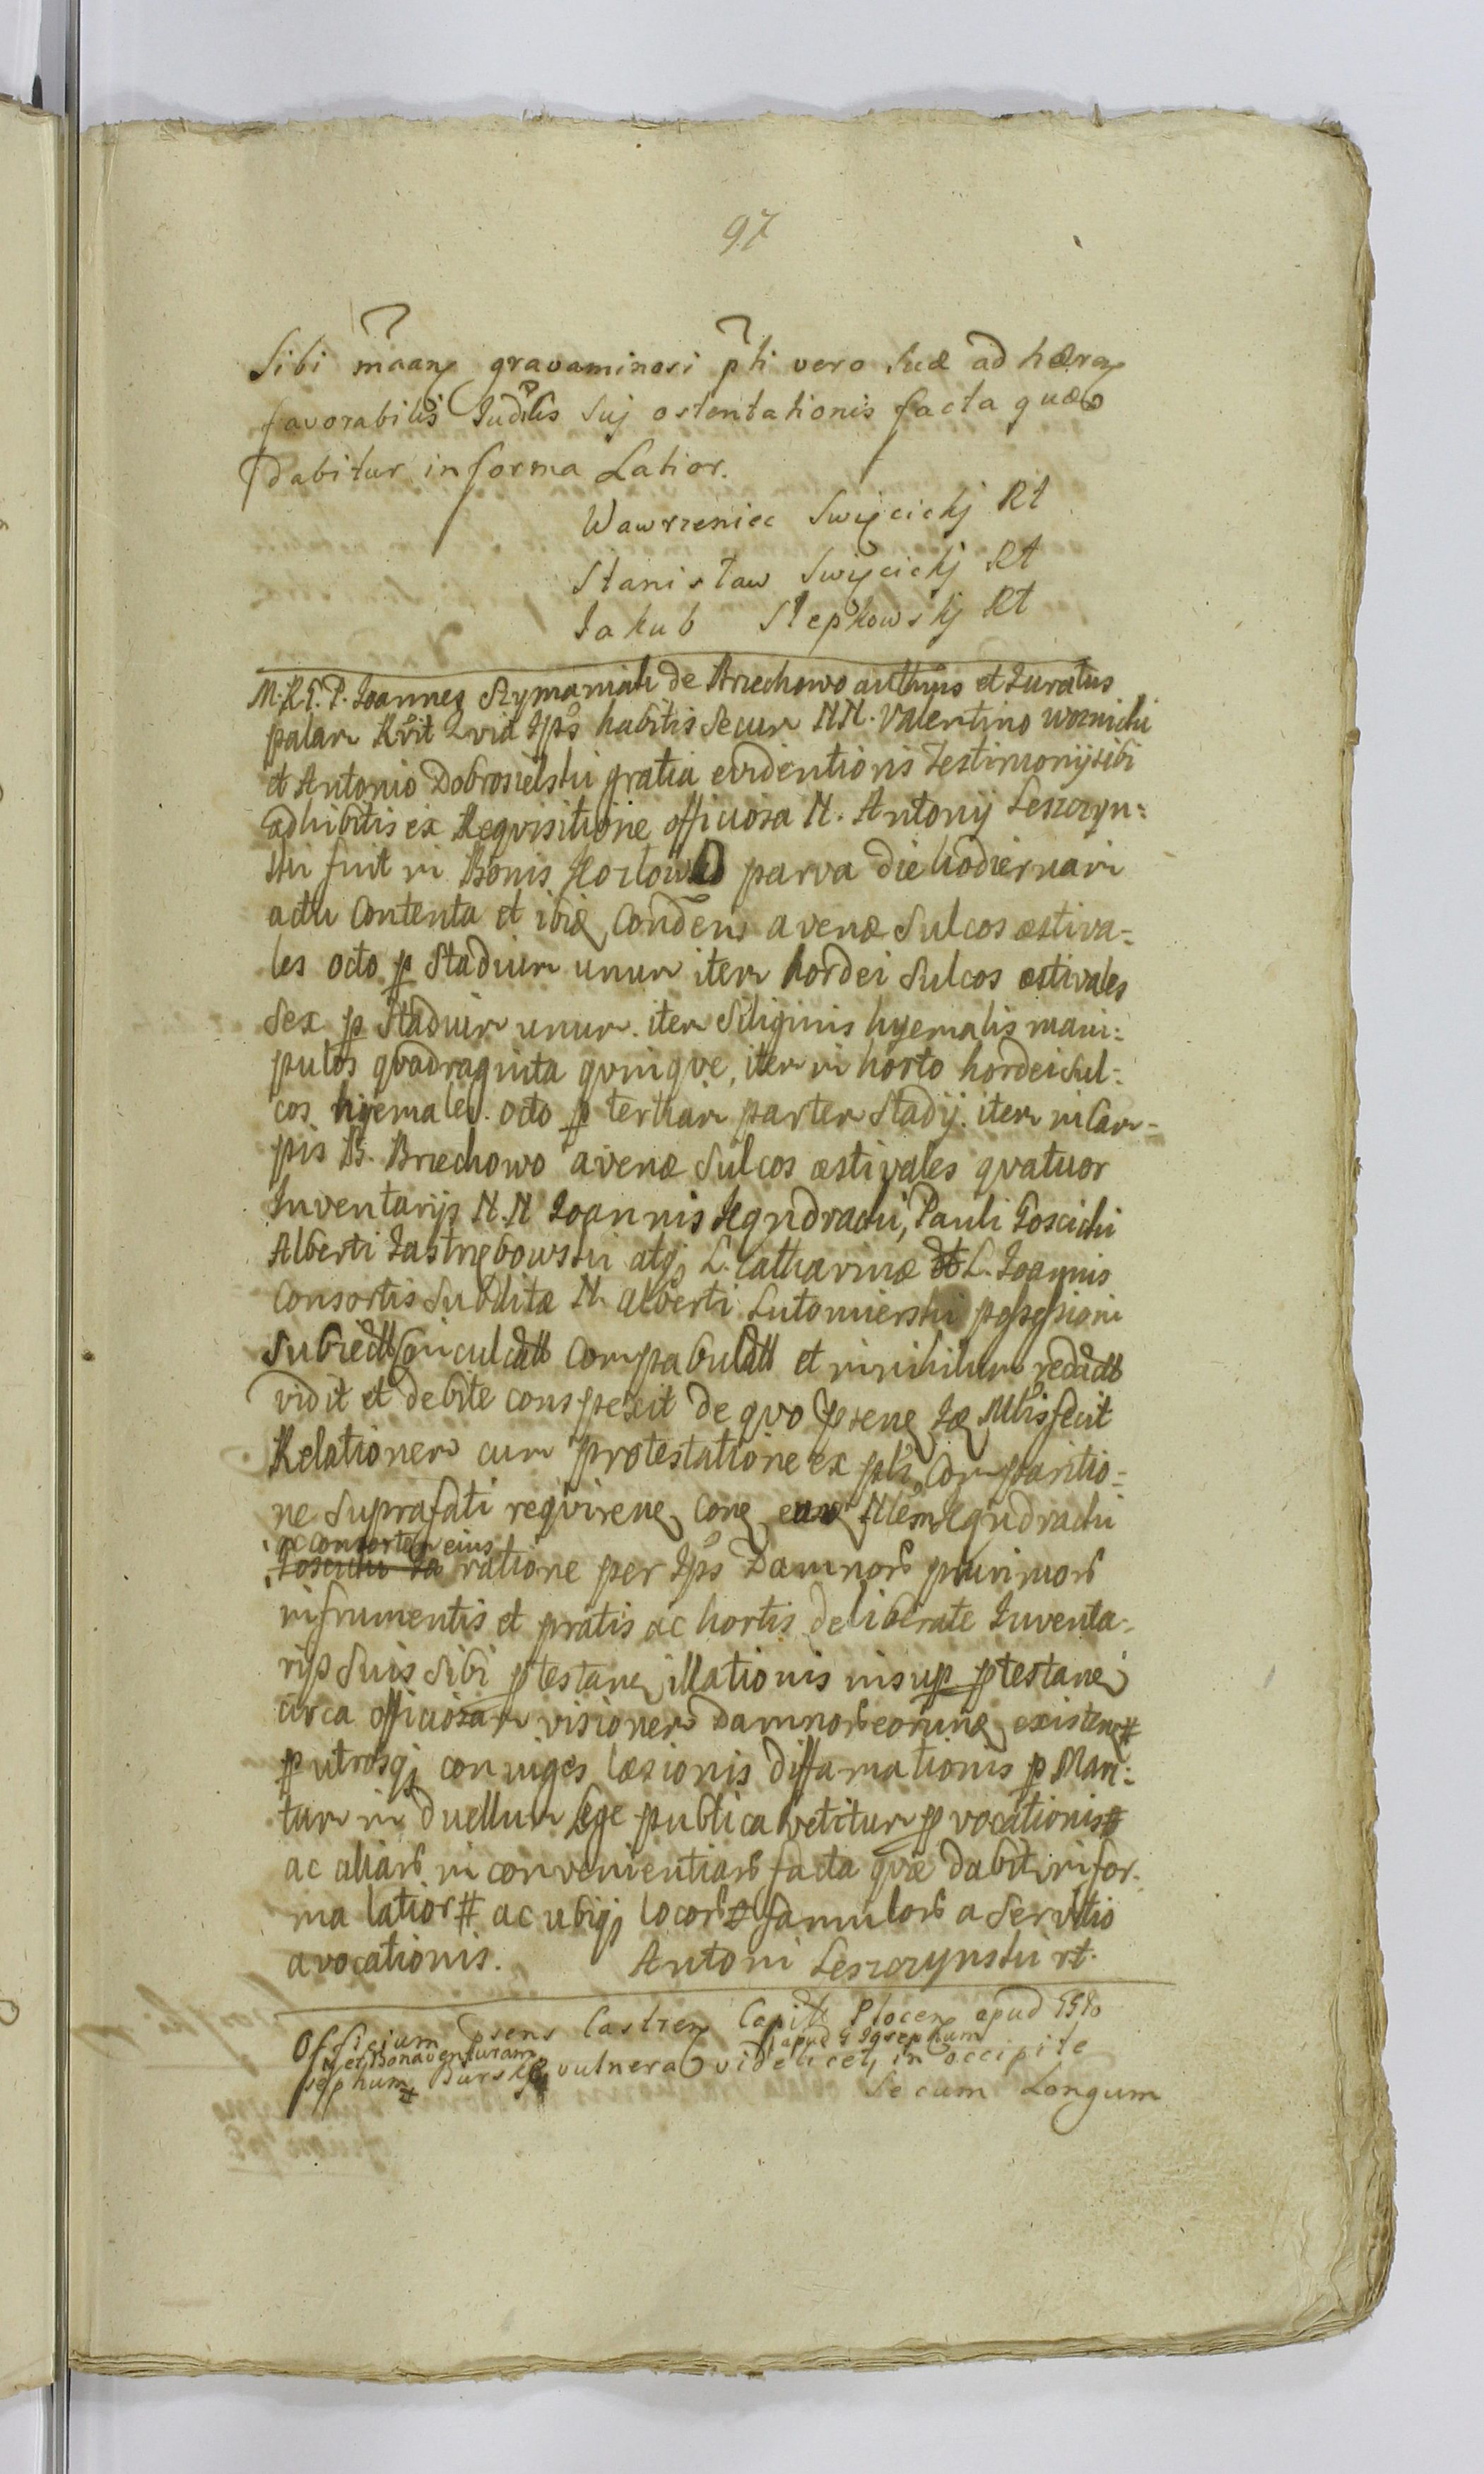 97
Sibi maan gravaminosi pti vero suæ ad hæren
favorabilis Judlis sui ostentationis facta quæ
dabitur in forma Latior.
Wawrzeniec Swięcickj Rt
Stanisław Swięcickj Rt
Jakub Stepkowskj Rt
M. R. G. P. Joannes Szymaniak de Brzechowo authcus et Juratus
palam Rvit Qvia Ips habitis secum NN. Valentino woznicki
et Antonio Dobrosielski gratia evidentioris Testimonij sibi
adhibitis ex Reqvisitione officiosa N. Antonij Leszczyn-
ski fuit in Bonis parva die hodierna in
actu contenta et ibid conden avenæ sulcos æstiva-
les octo p stadium unum item hordei sulcos æstivales
sex p stadium unum. item siliginis hyemalis mani-
pulos qvadraginta qvinqve, item in horto hordei sul-
cos hyemales. octo p tertiam partem stadij. item in Cam-
pis B. Brzechowo avenæ sulcos æstivales qvatuor
Inventarijs N.N Joannis Kędracki, Pauli Goscicki
Alberti Jastrzębowski atqj L. Catharinæ L. Joannis
Consortis subditæ N. alberti Lutomierski possessioni
subiect conculcat compabulat et in nihilum redact
vidit et debite conspexit de qvo psene Jæ Mlis fecit
Relationem cum protestatione ex pti comparitio-
ne suprafati reqviren con eun Nlem Kędracki
ac consortem eius
Goscicki Ja ratione per Ips Damnor plurimor
in frumentis et pratis ac hortis deliberate Inventa-
rijs suis sibi ptestan illationis insup ptestan
circa officiosam visionem Damnor eorund existen #
p utrosqj conjuges læsionis diffamationis p Mari-
tum in duellum lege publica vetitum pvocationis #
ac aliar inconvenientiar facta qvæ dabit in for-
ma latior # ac ubiqj locor famulor a servitio
avocationis. Antoni Leszczynski rt.
Officium psens Castren Capitle Plocen apud GG Jo
N et Bonaventuram apud G Josephum
sephum # Burskie vulnera videlicet in occipite
secum Longum